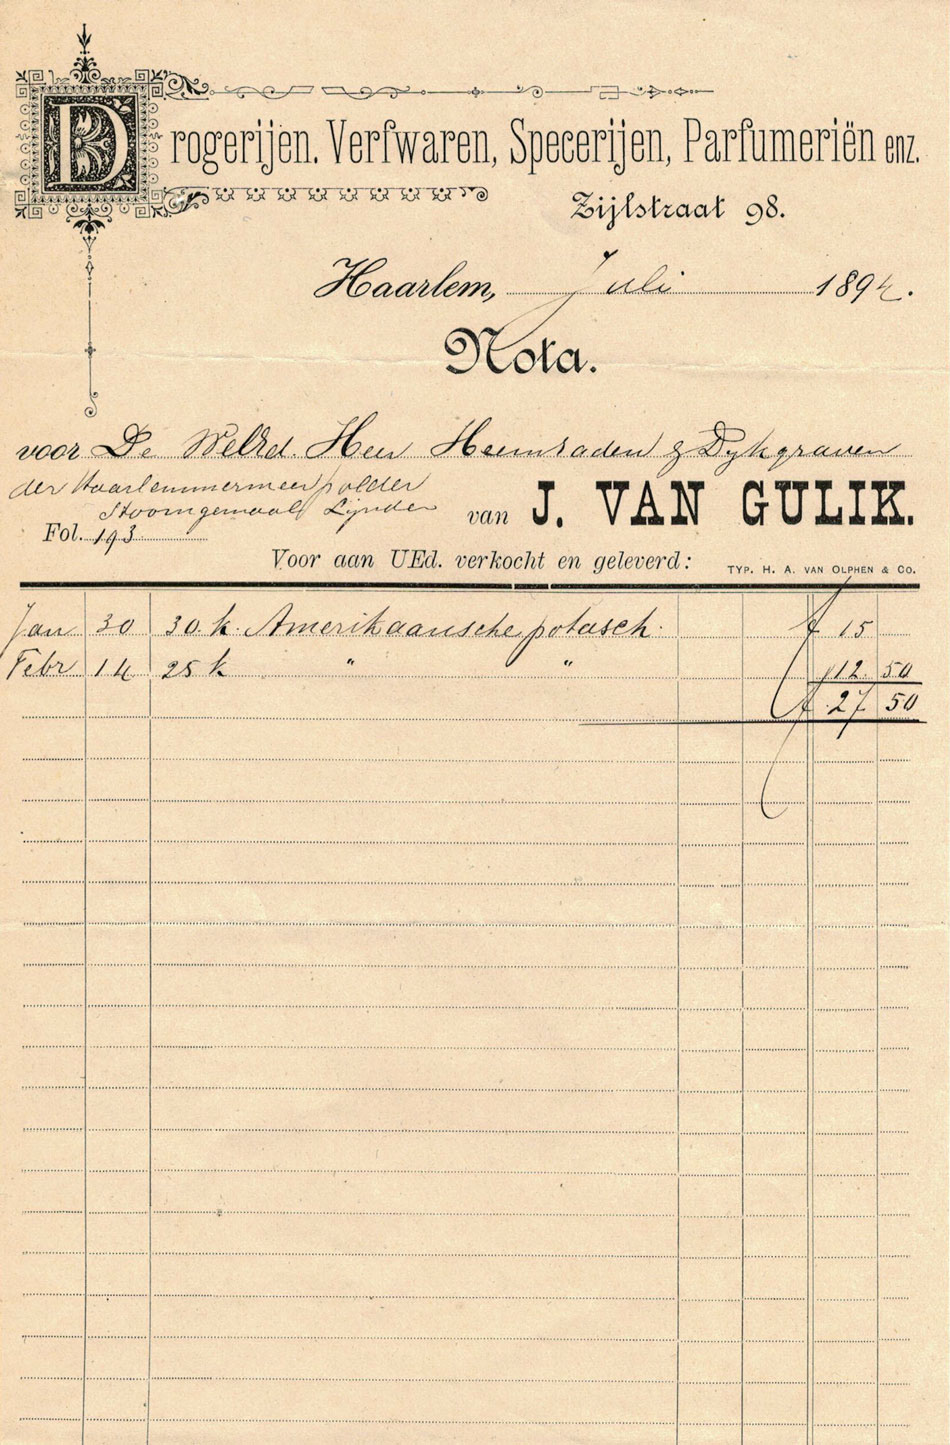 Drogerijen. Verfwaren, Specerijen, Parfumeriën enz.
Zijlstraat 98.
Haarlem, Juli 1894.
Nota.
voor De WelEd. Heer Heemraden & Dykgraven
der Haarlemmermeerpolder
Stoomgemaal Lynden
van J. VAN GULIK.
Fol. 193
Voor aan UEd. verkocht en geleverd:
TYP. H. A. VAN OLPHEN & CO.
Jan 30 30 k. Amerikaansche potasch. f 15
Febr 14 25 k " " " 12 50
f 27 50